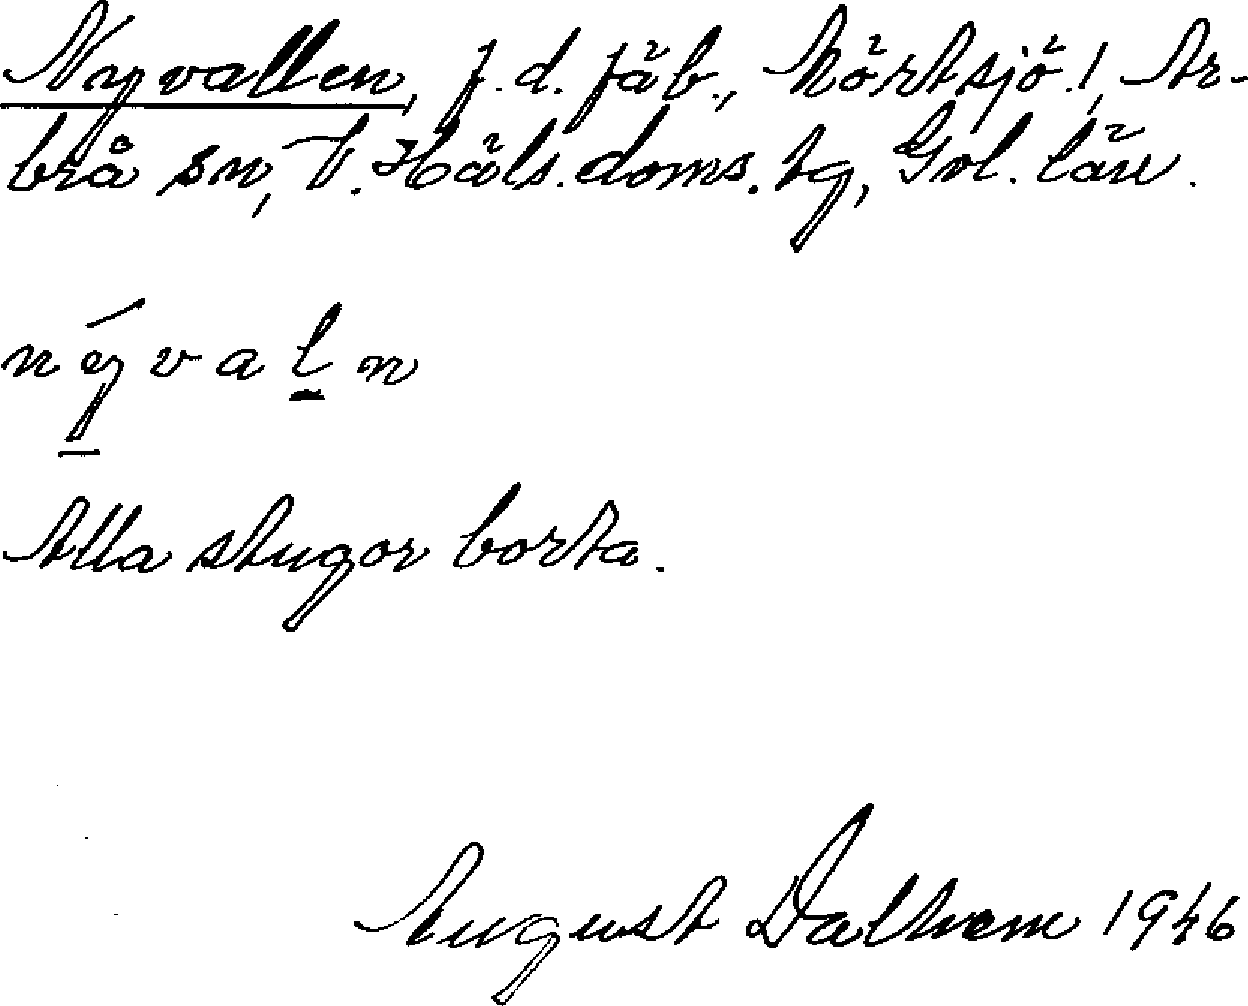 Nyvallen, f.d. fäb., Mörtsjö.l, Ar-
brå sn, V. Häls. doms. tg, Gvl. län.
nývaln
Alla stugor borta.
August Dalhem 1946